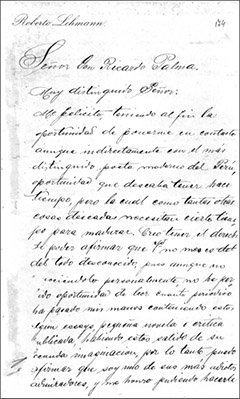 Roberto Lehmann.
Señor Don Ricardo Palma.
Muy distinguido Señor:
Me felicito, teniendo al fin la
oportunidad de ponerme en contacto
aunque indirectamente con el más
distinguido poeta moderno del Perú,
oportunidad que deseaba tener hace
tiempo, pero la cual como tantas otras
cosas deseadas necesitan cierto
para madurar. Creo tener el derecho
de poder afirmar que no me es
del todo desconocido, pues aunque no
conociéndolo personalmente, no ha
ido oportunidad de leer cuanto periódico
ha pasado mis manos conteniendo
algun ensayo, pequeña novela o crítica
publicada, habiendo estos salido de su
fecunda imaginacion, por lo tanto puedo
afirmar que soy uno de sus más
admiradores, y me honro pudiendo hacerle